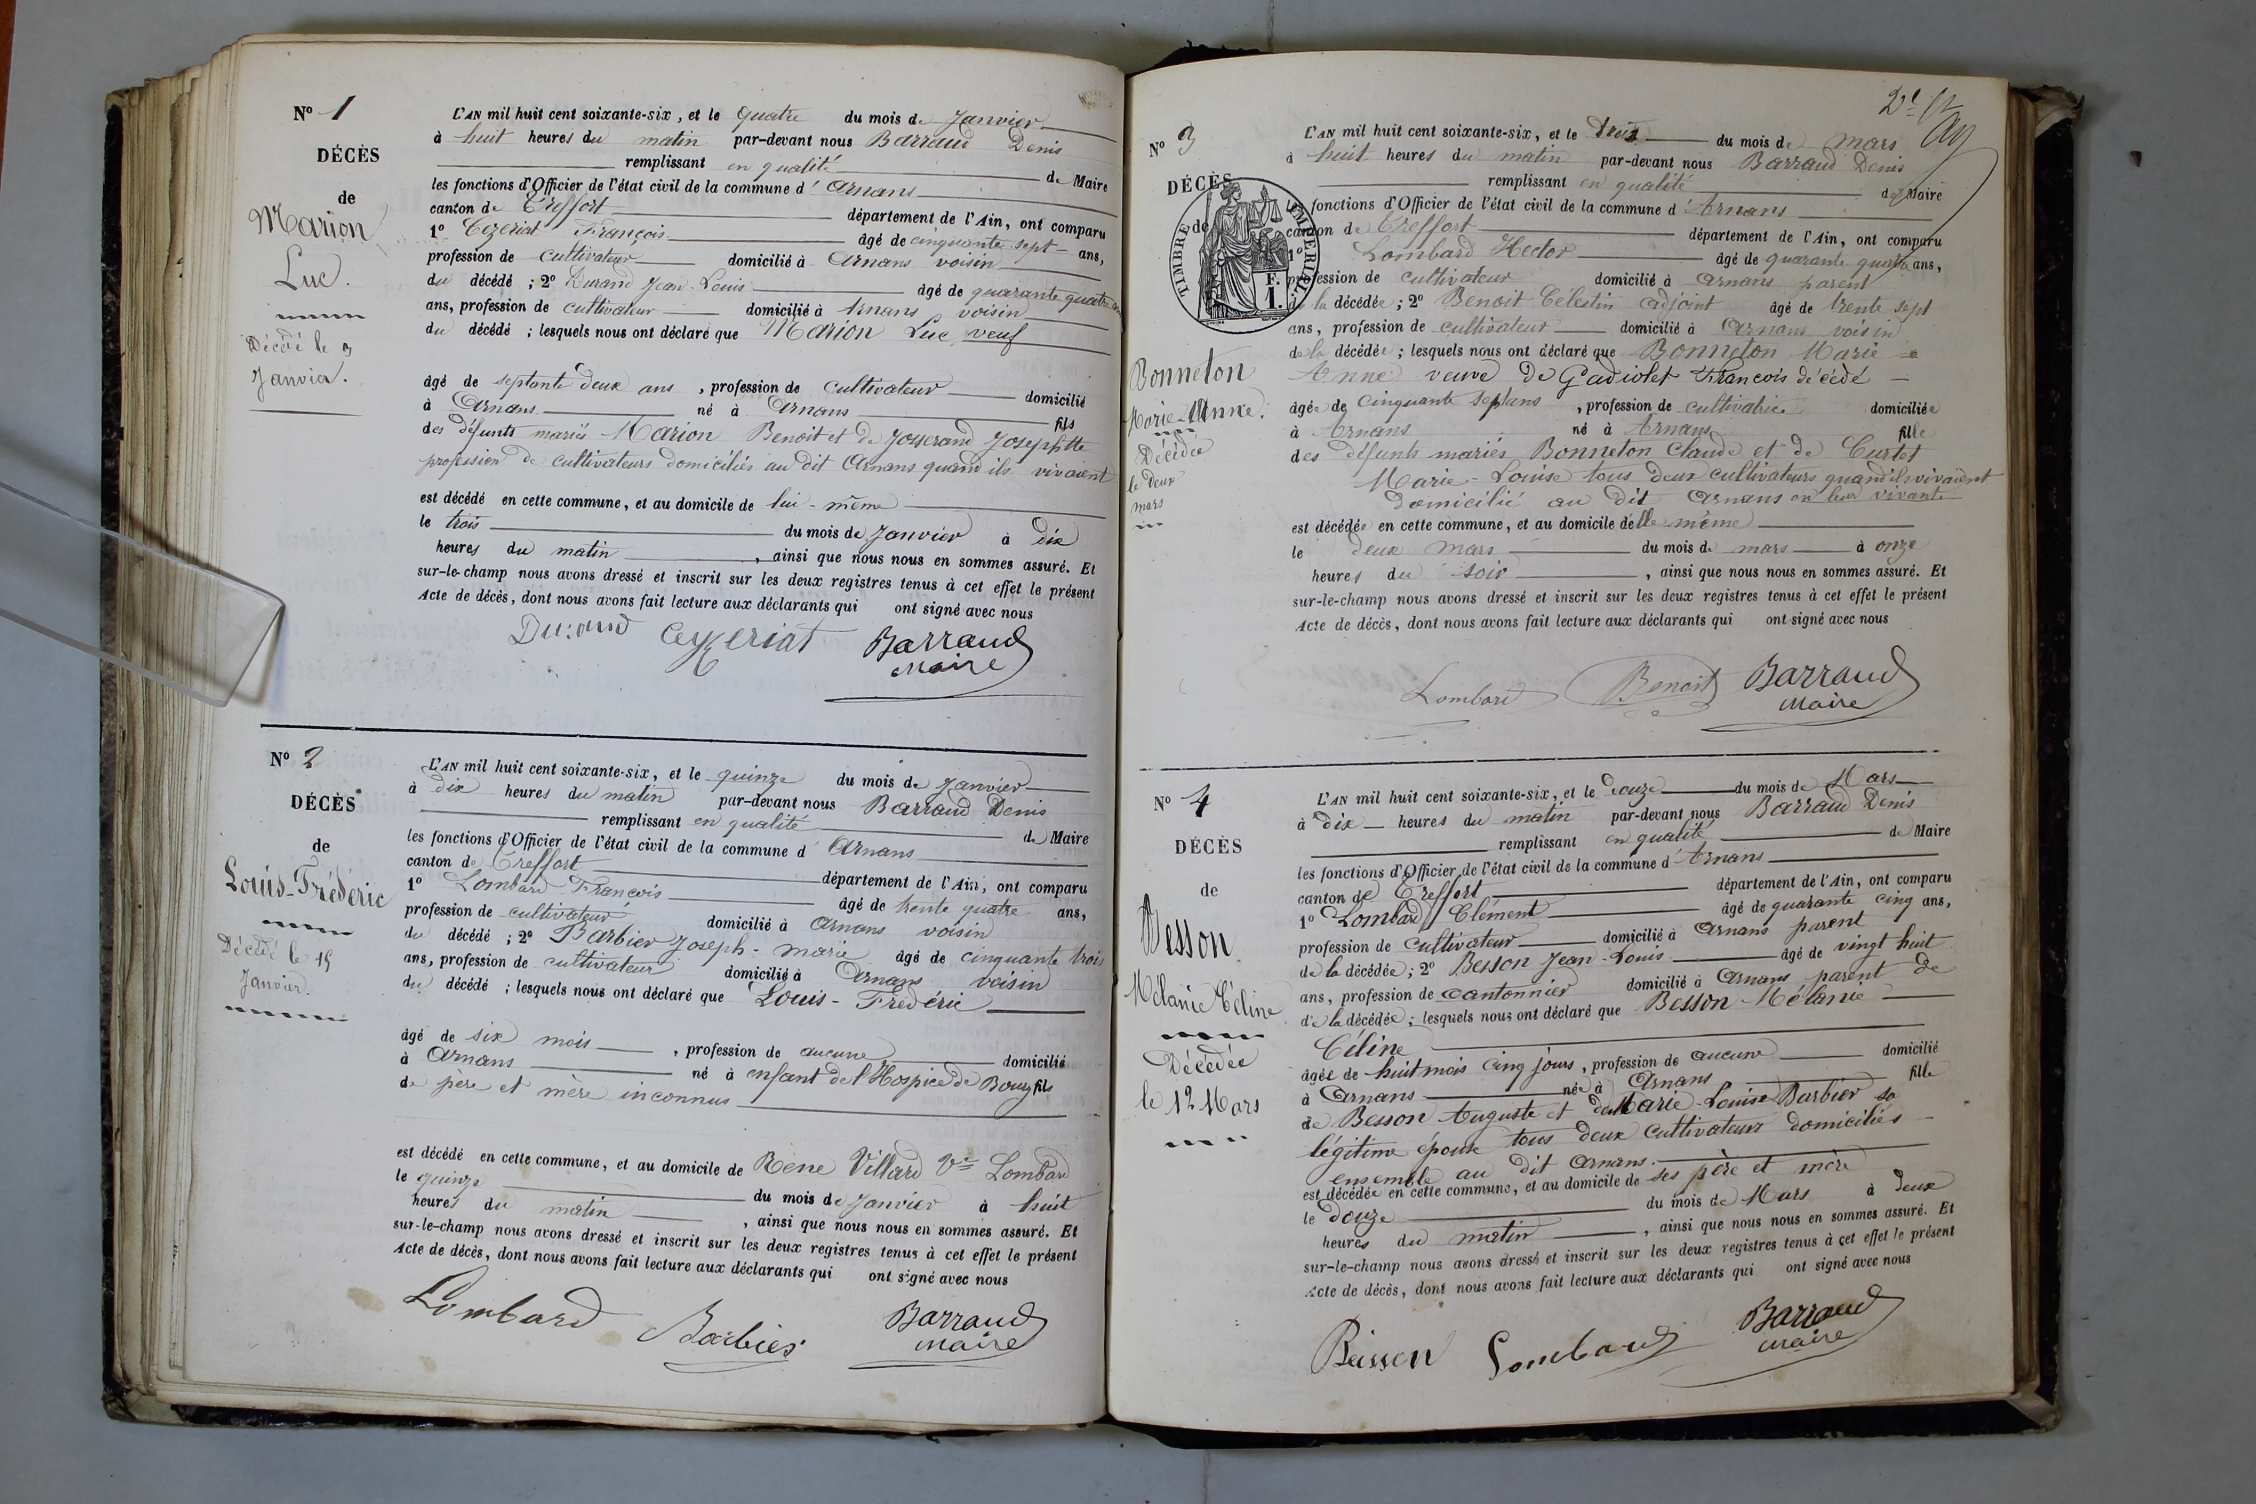 Nº 1
DÉCÈS
de
Marion
Luc.
Décédé le 3
Janvier.
L'AN mil huit cent soixante-six, et le quatre du mois de Janvier
à huit heures du matin par-devant nous Barraud Denis
remplissant en qualité de Maire
les fonctions d'Officier de l'état civil de la commune d'Arnans
canton de Treffort département de l'Ain, ont comparu
1º Ceyzeriat François âgé de cinquante sept ans,
profession de cultivateur domicilié à Arnans voisin
du décédé ; 2º Durand Jean-Louis âgé de quarante quatre
ans, profession de cultivateur domicilié à Arnans voisin
du décédé ; lesquels nous ont déclaré que Marion Luc, veuf
âgé de septante deux ans , profession de cultivateur domicilié
à Arnans né à Arnans fils
des défunts mariés Marion Benoit et de Josserand Josephtte
profession de cultivateurs domiciliés au dit Arnans quand ils vivaient
est décédé en cette commune, et au domicile de lui-même
le trois du mois de Janvier à dix
heures du matin , ainsi que nous nous en sommes assuré. Et
sur-le-champ nous avons dressé et inscrit sur les deux registres tenus à cet effet le présent
Acte de décès, dont nous avons fait lecture aux déclarants qui ont signé avec nous
Durand Ceyzeriat Barraud
Maire
Nº 2
DÉCÈS
de
Louis-Frédéric
Décédé le 15
Janvier.
L'AN mil huit cent soixante-six, et le quinze du mois de Janvier
à dix heures du matin par-devant nous Barraud Denis
remplissant en qualité de Maire
les fonctions d'Officier de l'état civil de la commune d'Arnans
canton de Treffort département de l'Ain, ont comparu
1º Lombard François âgé de trente quatre ans,
profession de cultivateur domicilié à Arnans voisin
du décédé ; 2º Barbier Joseph-marie âgé de cinquante trois
ans, profession de cultivateur domicilié à Arnans voisin
du décédé ; lesquels nous ont déclaré que Louis-Frédéric
âgé de six mois , profession de aucune domicilié
à Arnans né à enfant de l'Hospice de Bourg fils
de père et mère inconnus
est décédé en cette commune, et au domicile de Rene Villard Vve Lombard
le quinze du mois de Janvier à huit
heures du matin , ainsi que nous nous en sommes assuré. Et
sur-le-champ nous avons dressé et inscrit sur les deux registres tenus à cet effet le présent
Acte de décès, dont nous avons fait lecture aux déclarants qui ont signé avec nous
Lombard Barbier Barraud
Maire
Nº 3
DÉCÈS
de
TIMBRE IMPERIAL
F.
1.
Bonneton
Marie-Anne.
Décédée
le deux
mars
L'AN mil huit cent soixante-six, et le trois du mois de mars
à huit heures du matin par-devant nous Barraud Denis
remplissant en qualité de Maire
fonctions d'Officier de l'état civil de la commune d'Arnans
canton de Treffort département de l'Ain, ont comparu
1º Lombard Hector âgé de quarante quatre ans,
profession de cultivateur domicilié à Arnans parent
de la décédée ; 2º Benoit Célestin adjoint âgé de trente sept
ans, profession de cultivateur domicilié à Arnans voisin
de la décédée ; lesquels nous ont déclaré que Bonneton Marie
Anne veuve de Gadiolet François décédé
âgée de cinquante sept ans , profession de cultivatrice domiciliée
à Arnans né à Arnans fille
des défunts mariés Bonneton Claude et de Curtet
Marie-Louise tous deux cultivateurs quand ils vivaient
domicilié au dit Arnans en leur vivante
est décédée en cette commune, et au domicile d'elle même
le deux mars du mois de mars à onze
heures du soir , ainsi que nous nous en sommes assuré. Et
sur-le-champ nous avons dressé et inscrit sur les deux registres tenus à cet effet le présent
Acte de décès, dont nous avons fait lecture aux déclarants qui ont signé avec nous
Lombard Benoit Barraud
Maire
Nº 4
DÉCÈS
de
Besson
Mélanie Céline
Décédée
le 12 Mars
L'AN mil huit cent soixante-six, et le douze du mois de Mars
à dix heures du matin par-devant nous Barraud Denis
remplissant en qualité de Maire
les fonctions d'Officier de l'état civil de la commune d'Arnans
canton de Treffort département de l'Ain, ont comparu
1º Lombard Clément âgé de quarante cinq ans,
profession de cultivateur domicilié à Arnans parent
de la décédée; 2º Besson Jean-Louis âgé de vingt huit
ans, profession de cantonnier domicilié à Arnans parent de
de la décédée; lesquels nous ont déclaré que Besson Mélanie
Céline
âgée de huit mois cinq jours, profession de aucune domicilié
à Arnans née à Arnans fille
de Besson Auguste et de Marie-Louise Barbier sa
légitime épouse tous deux cultivateurs domiciliés
ensemble au dit Arnans.
est décédée en cette commune, et au domicile de ses père et mère
le douze du mois de Mars à deux
heures du matin , ainsi que nous nous en sommes assuré. Et
sur-le-champ nous avons dressé et inscrit sur les deux registres tenus à cet effet le présent
Acte de décès, dont nous avons fait lecture aux déclarants qui ont signé avec nous
Beisson Lombard Barraud
Maire